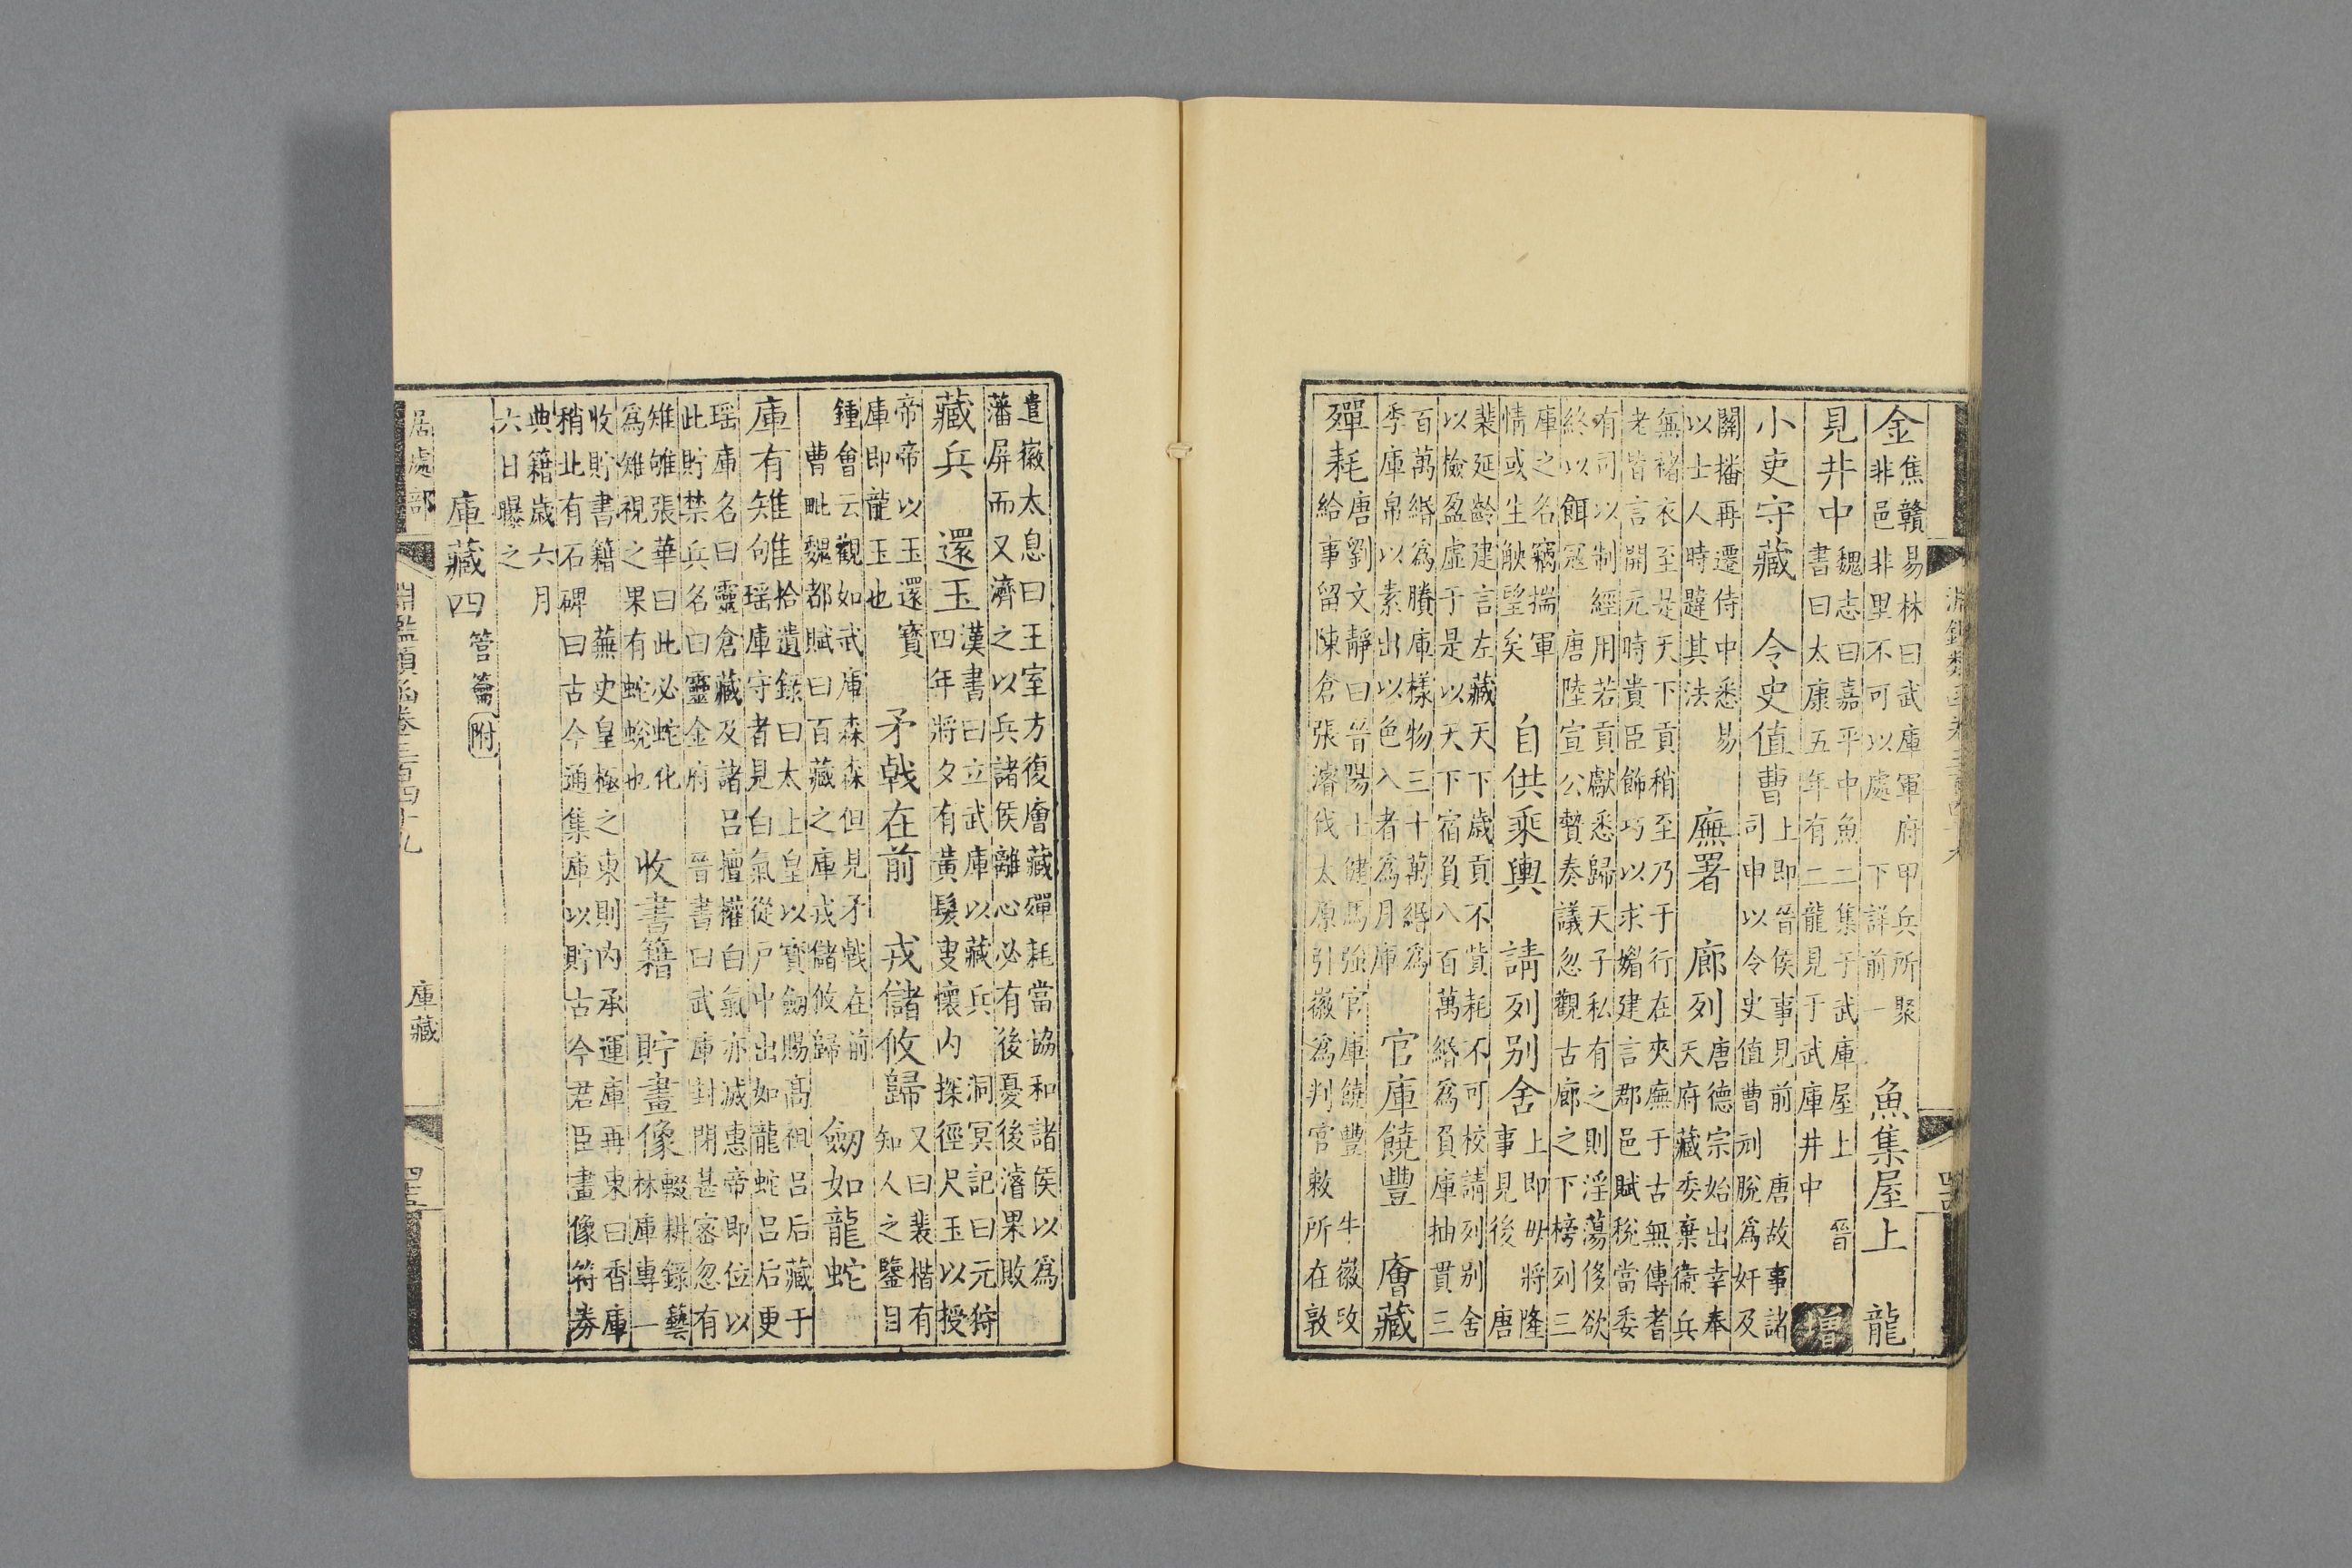 金焦贛易林曰武庫軍府甲兵所聚
非邑非里不可以處下詳前一魚集屋上 龍
見井中魏志曰嘉平中魚二集于武庫屋上
書曰太康五年有二龍見于武庫井中 晉增
小吏守藏 令史值曹上即晉侯事見前 唐故事諸
司申以令史值曹刓脫為奸及
關播再遷侍中悉易
以士人時韙其法 廡署 廊列唐德宗始出幸奉
天府藏委棄衞兵
無褚衣至是天下貢稍至乃于行在夾廡于古無傳耆
老皆言開元時貴臣飾巧以求媚建言郡邑賦稅當委
有司以制經用若貢獻悉歸天子私有之則淫蕩侈欲
終以餌冠 唐陸宣公贄奏議忽觀古廊之下榜列三
庫之名竊揣軍
情或生觖望矣 自供乘輿 請列别舍上即毋將隆
事見後 唐
裴延齡建言左藏天下歲貢不貲耗不可校請列别舍
以檢盈虛于是以天下宿負八百萬緡為負庫抽貫三
百萬緡為賸庫樣物三十萬緡為
季庫帛以素出以色入者為月庫 官庫饒豐 廥藏
殫耗唐劉文靜曰晉陽士健馬強官庫饒豐 牛徽攻
給事留陳倉張濬伐太原引徽為判官敕所在敦
遣徽太息曰王室方復廥藏殫耗當協和諸侯以為
藩屏而又濟之以兵諸侯離心必有後憂後濬果敗
藏兵 還玉漢書曰立武庫以藏兵 洞冥記曰元狩
四年將夕有黃髮叟懷内探徑尺玉以授
帝帝以玉還寶
庫即龍玉也 矛戟在前 戎儲攸歸又曰裴楷有
知人之鑒目
鍾會云觀如武庫森森但見矛戟在前
曹毗魏都賦曰百藏之庫戎儲攸歸 劒如龍蛇
庫有雉雊拾遺錄曰太上皇以寶劒賜高祖呂后藏于
瑶庫守者見白氣從户中出如龍蛇呂后更
瑶庫名曰靈倉藏及諸呂擅權白氣亦滅惠帝即位以
此貯禁兵名曰靈金府 晉書曰武庫封閉甚密忽有
雉雊張華曰此必蛇化
為雉視之果有蛇蛻也 收書籍 貯畫像輟耕錄藝
林庫專一
收貯書籍 蕪史皇極之東則内承運庫再東曰香庫
稍北有石碑曰古今通集庫以貯古今君臣畫像符券
典籍歲六月
六日曝之
庫藏四管籥附
居處部 淵鑑類函卷三百四十九 庫藏